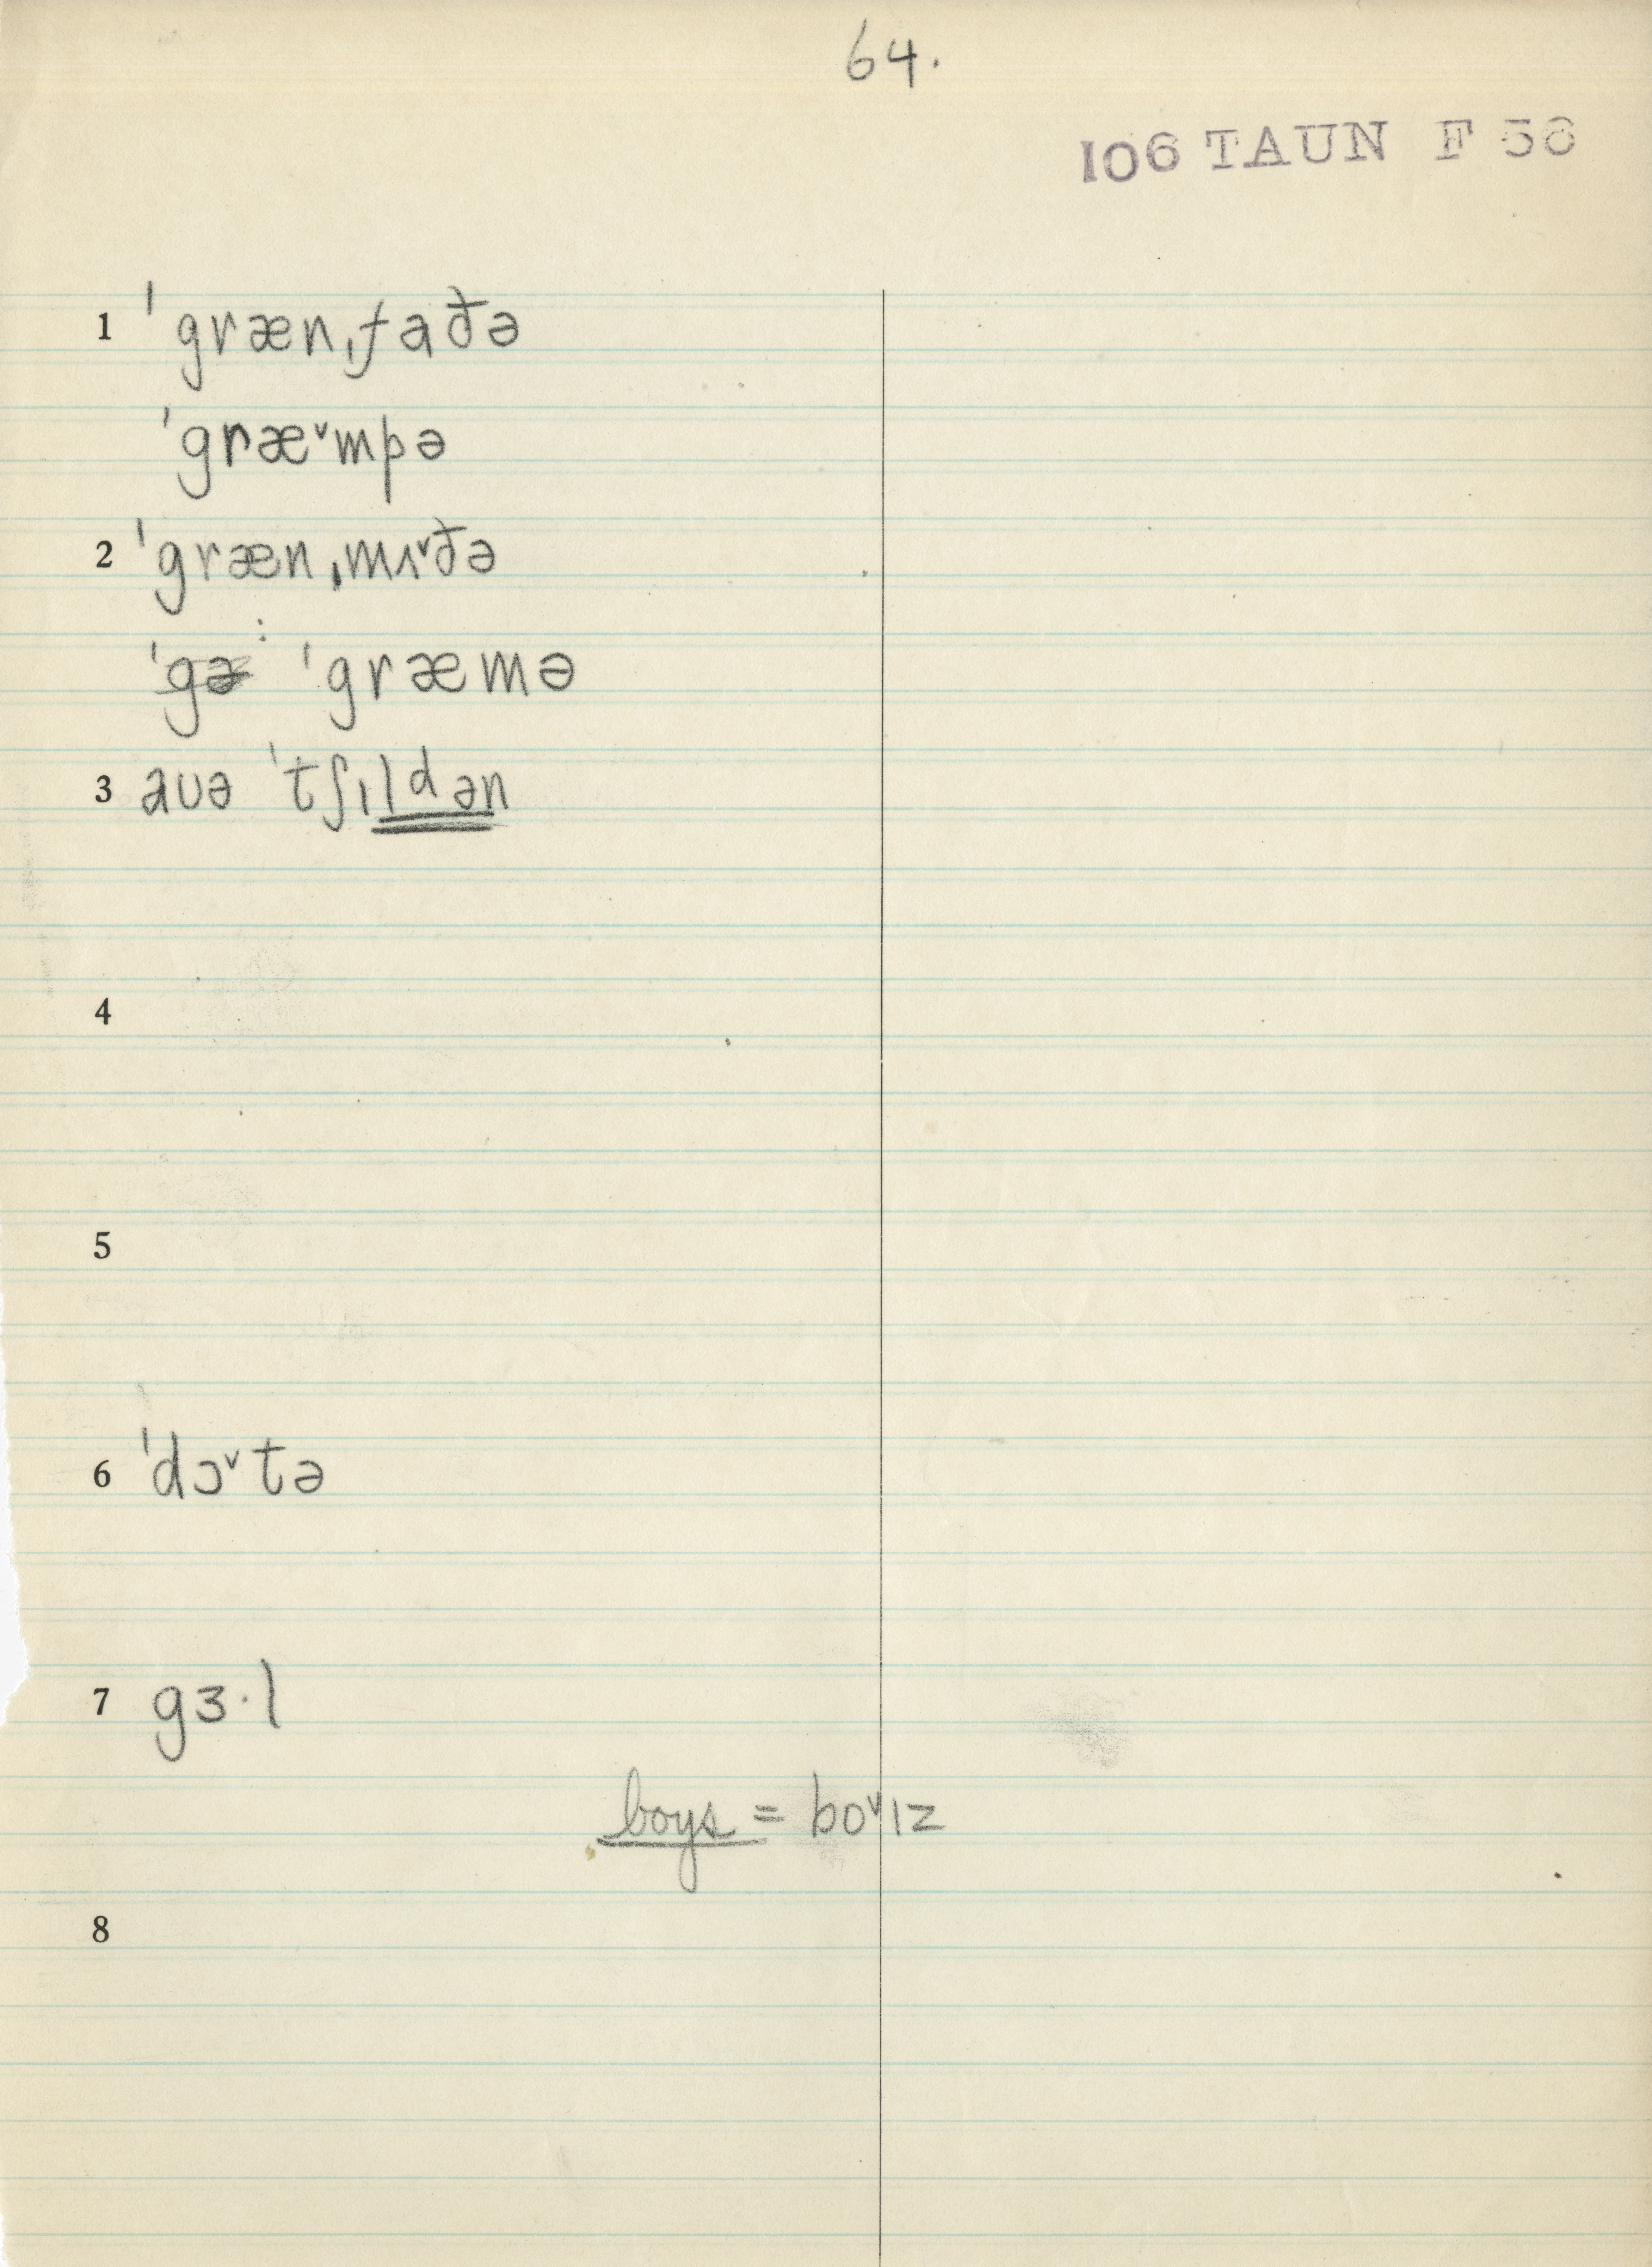 64.
106 TAUN F 56
1 ˈgrænˌfaðə
ˈgræ˅mpə
2 ˈgrænˌmʌ˅ðə
: ˈgræmə
3 auə ˈtʃɪldən
4
5
6 ˈdɔ˅tə
7 gɜ·l
boys = bo˅ɪz
8